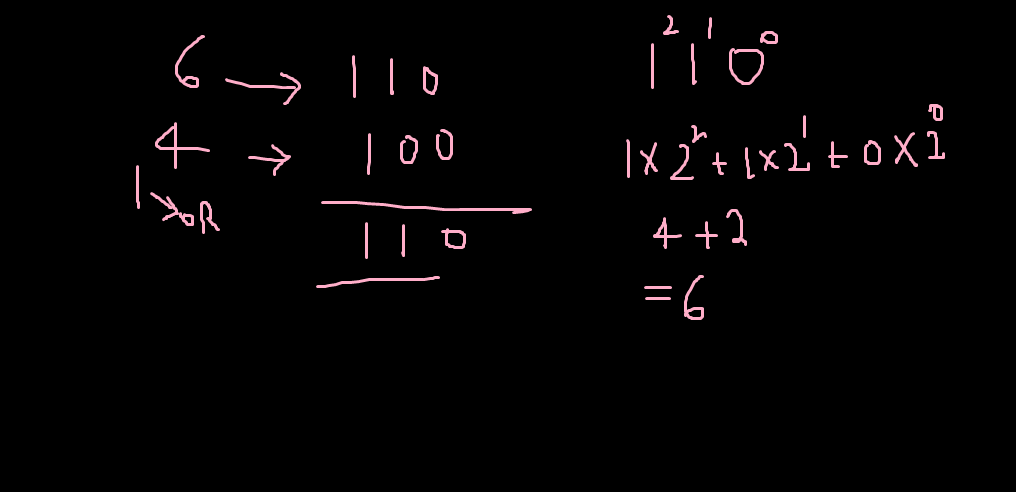 6 → 110
4 → 100
| → OR
110
1²1¹0⁰
1×2²+1×2¹+0×2⁰
4+2
=6